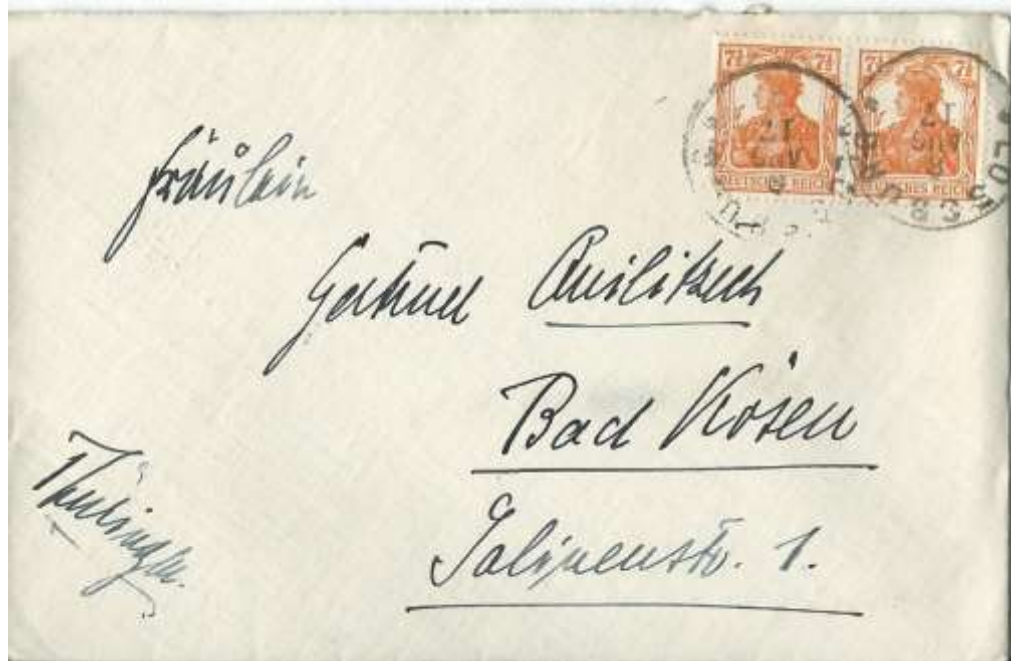 7½ 7½ 7½ 7½
DEUTSCHES REICH DEUTSCHES REICH
Fräulein
Gertrud Quilitzsch
Bad Kösen
Salinenstr. 1.
Thüringen.